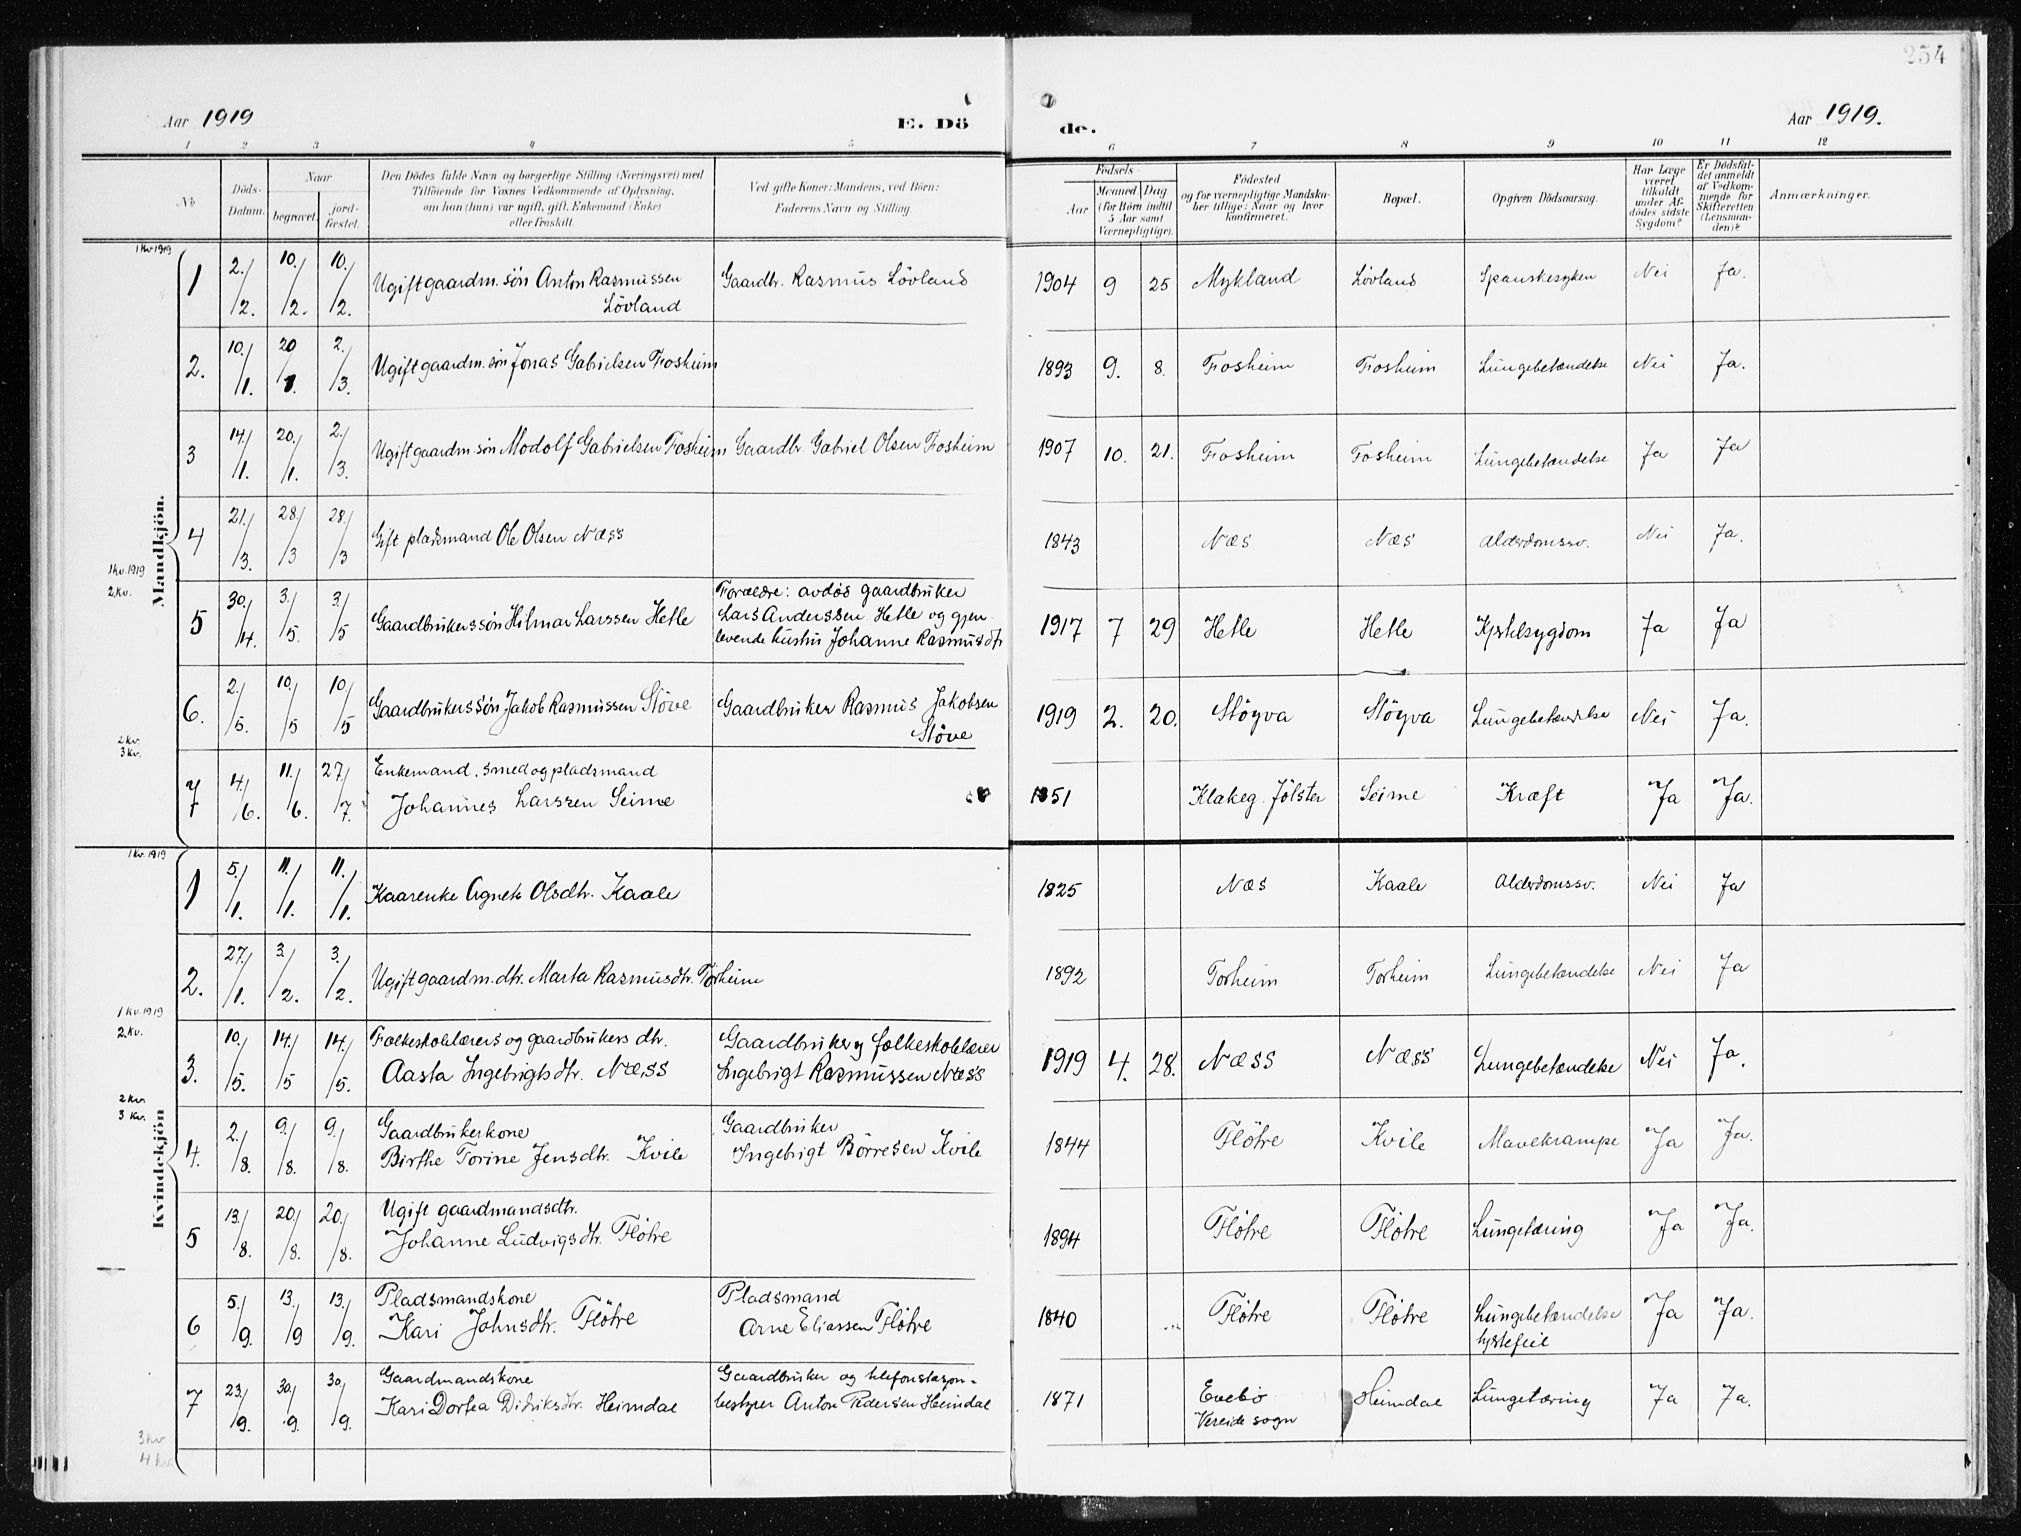 254
Aar 1919
E. Dö
de.
Aar 1919.
1 2 3 4 5 6 7 8 9 10 11 12
№
Döds-
Datum.
Naar
begravet.
jord-
fæstet.
Den Dödes fulde Navn og borgerlige Stilling (Næringsvei) med
Tilföiende for Voxnes Vedkommende af Oplysning,
om han (hun) var ugift, gift, Enkemand (Enke)
eller fraskilt.
Ved gifte Koner: Mandens, ved Börn:
Faderens Navn og Stilling.
Födsels-
Aar
Meaned Dag
(for Börn indtil
5 Aar samt
Værnepligtige).
Födested
og for værnepligtige Mandska-
ber tillige: Naar og hvor
konfirmeret.
Bopæl.
Opgiven Dödsaarsag.
Har Læge
været
tilkaldt
under Af-
dödes sidste
Sygdom?
Er Dödsfal-
det anmeldt
af Vedkom-
mende for
Skifteretten
(Lensman-
den)?
Anmærkninger.
Mandkjön.
1 Kv 1919
1 2./2. 10./2. 10./2. Ugift gaardm. sön Anton Rasmussen
Lövland
Gaardbr. Rasmus Lövland 1904 9 25 Mykland Lövland Spanskesyken Nei Ja.
2. 10./1. 20/1. 2./3. Ugift gaardm. sön Jonas Gabrielsen Fosheim 1893 9. 8. Fosheim Fosheim Lungebetændelse Nei Ja.
3 14./1. 20./1. 2./3. Ugift gaardm. sön Modolf Gabrielsen Fosheim Gaardbr Gabriel Olsen Fosheim 1907 10. 21. Fosheim Fosheim Lungebetændelse Ja Ja
4 21./3. 28./3 28./3 Gift pladsmand Ole Olsen Næss 1843 Næs Næs Alderdomssv. Nei Ja.
1kv. 1919
2 Kv.
5 30./4. 3./5. 3./5 Gaardbrukerssön Hilmar Larssen Hetle
Forældre: avdös gaardbruker
Lars Anderssen Hetle og gjen-
levende hustru Johanne Rasmusdtr
1917 7 29 Hetle Hetle Kjertelsygdom Ja Ja
6. 2./5. 10./5 10/5 Gaardbrukerssön Jakob Rasmussen Stöve Gaardbruker Rasmus Jakobsen
Stöve
1919 2. 20. Stöyva Stöyva Lungebetændelse Nei Ja.
2 Kv.
3 Kv.
7 4./6. 11./6. 27./7. Enkemand, smed og pladsmand
Johannes Larssen Seime
1851 Klakeg. Jölster Seime Kræft Ja Ja.
Kvindekjön
1 Kv. 1919
1 5./1. 11./1. 11./1. Kaarenke Agnete Olsdtr. Kaale 1825 Næs Kaale Alderdomssv. Nei Ja
2. 27./1. 3./2. 3./2. Ugift gaardm. dtr. Marta Rasmusdtr. Torheim 1892 Torheim Torheim Lungebetændelse Nei Ja
1 Kv. 1919
2. Kv.
3. 10./5. 14./5 14./5. Folkeskolelærers og gaardbrukers dtr.
Aasta Ingebrigtsdtr. Næss
Gaardbruker og folkeskolelærer
Ingebrigt Rasmussen Næss
1919 4. 28. Næss Næss Lungebetændelse Nei Ja.
2 Kv.
3 Kv.
4. 2./8. 9./8. 9./8. Gaardbrukerkone
Birthe Torine Jensdtr. Kvile
Gaardbruker
Ingebrigt Börresen Kvile
1844 Flötre Kvile Mavekrampe Ja Ja.
5 13./8. 20./8. 20./8. Ugift gaardmandsdtr.
Johanne Ludvigsdtr. Flötre
1894 Flötre Flötre Lungetæring Ja Ja.
6 5./9. 13./9 13./9. Pladsmandskone
Kari Johnsdtr. Flötre
Pladsmand
Arne Eliassen Flötre
1840 Flötre Flötre Lungebetændelse
hjertefeil
Ja Ja.
7 23./9. 30./9. 30./9. Gaardmandskone
Kari Dortea Didriksdtr. Heimdal
Gaardbruker og telefonstasjon-
bestyrer Anton Pedersen Heimdal
1871 Evebö
Vereide sogn
Heimdal Lungetæring Ja Ja.
3 Kv
4 Kv.